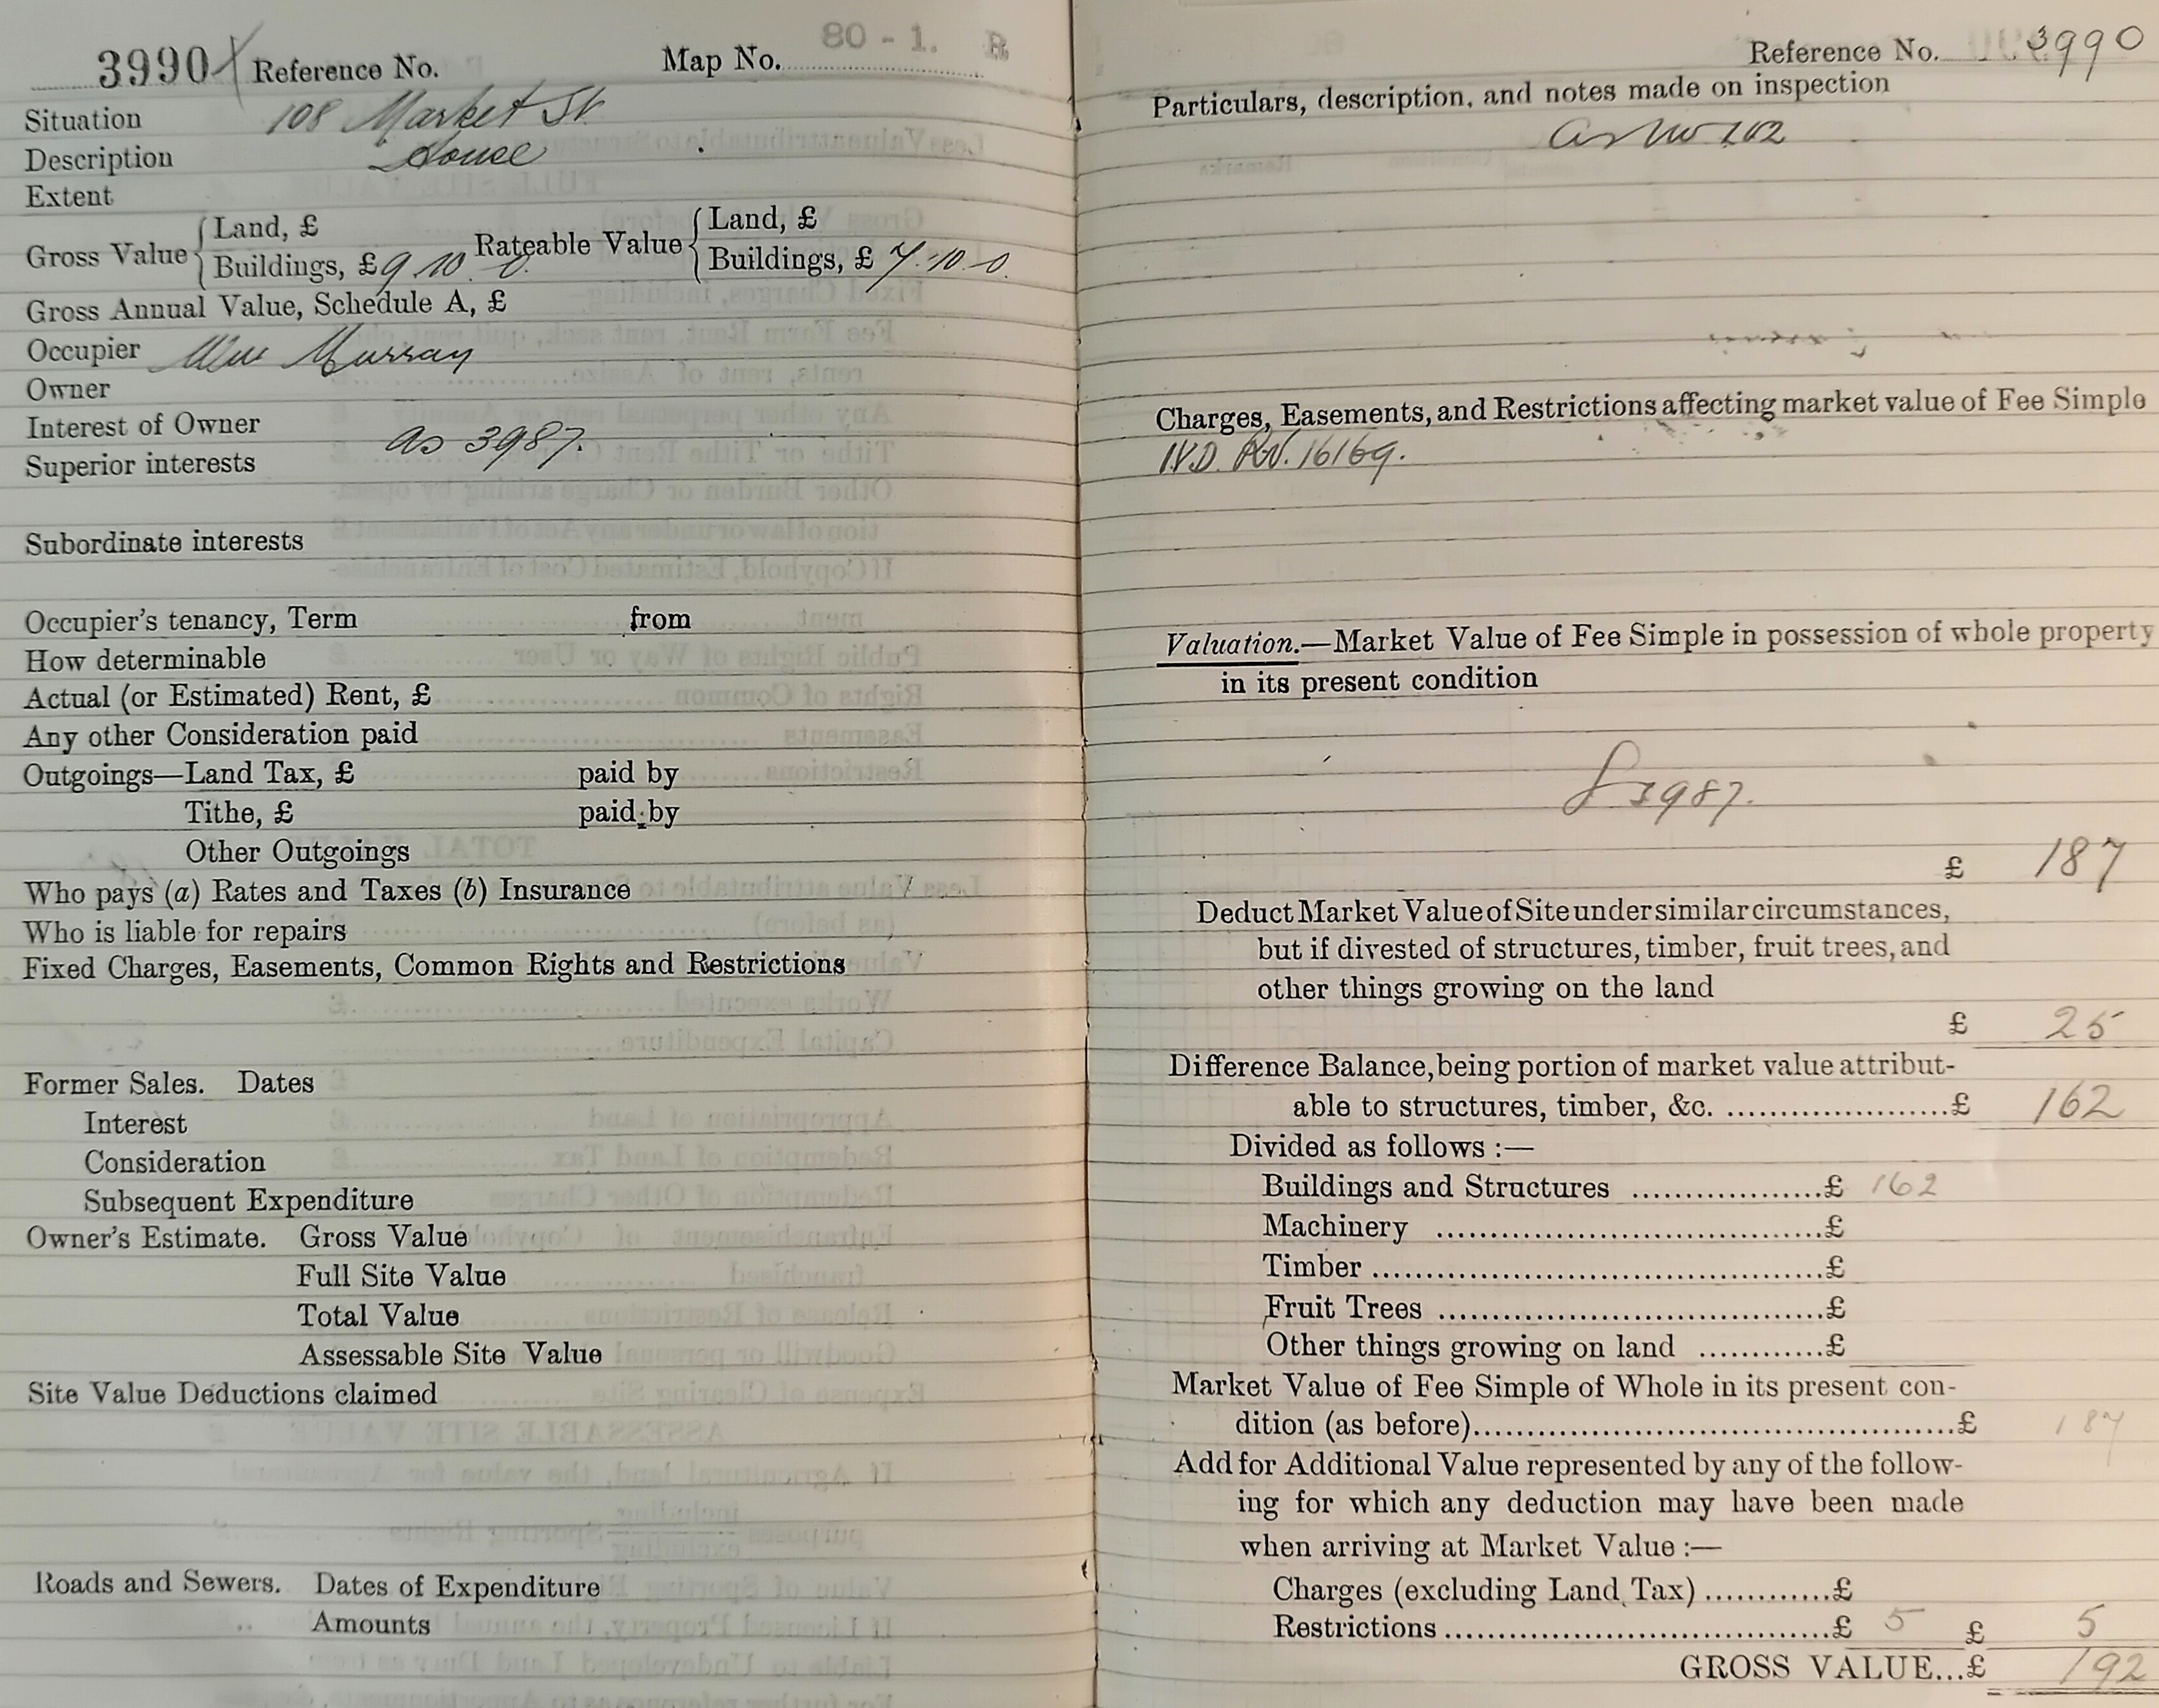 3990 Reference No. Map No. 80 - 1. B
Situation 108 Market St.
Description House
Extent
Gross Value { Land, £
Buildings, £ 9.10.0. Rateable Value { Land, £
Buildings, £ 7.10.0.
Gross Annual Value, Schedule A, £
Occupier Wm Murray
Owner
Interest of Owner
as 3987.
Superior interests
Subordinate interests
Occupier's tenancy, Term from
How determinable
Actual (or Estimated) Rent, £
Any other Consideration paid
Outgoings—Land Tax, £ paid by
Tithe, £ paid by
Other Outgoings
Who pays (a) Rates and Taxes (b) Insurance
Who is liable for repairs
Fixed Charges, Easements, Common Rights and Restrictions
Former Sales. Dates
Interest
Consideration
Subsequent Expenditure
Owner's Estimate. Gross Value
Full Site Value
Total Value
Assessable Site Value
Site Value Deductions claimed
Roads and Sewers. Dates of Expenditure
Amounts
Reference No. 3990
Particulars, description, and notes made on inspection
as No 102
Charges, Easements, and Restrictions affecting market value of Fee Simple
16169.
Valuation.—Market Value of Fee Simple in possession of whole property
in its present condition
3987.
£ 187
Deduct Market Value of Site under similar circumstances,
but if divested of structures, timber, fruit trees, and
other things growing on the land
£ 25
Difference Balance, being portion of market value attribut-
able to structures, timber, &c. £ 162
Divided as follows :—
Buildings and Structures £ 162
Machinery £
Timber £
Fruit Trees £
Other things growing on land £
Market Value of Fee Simple of Whole in its present con-
dition (as before) £ 187
Add for Additional Value represented by any of the follow-
ing for which any deduction may have been made
when arriving at Market Value :—
Charges (excluding Land Tax) £
Restrictions £ 5 £ 5
GROSS VALUE...£ 192